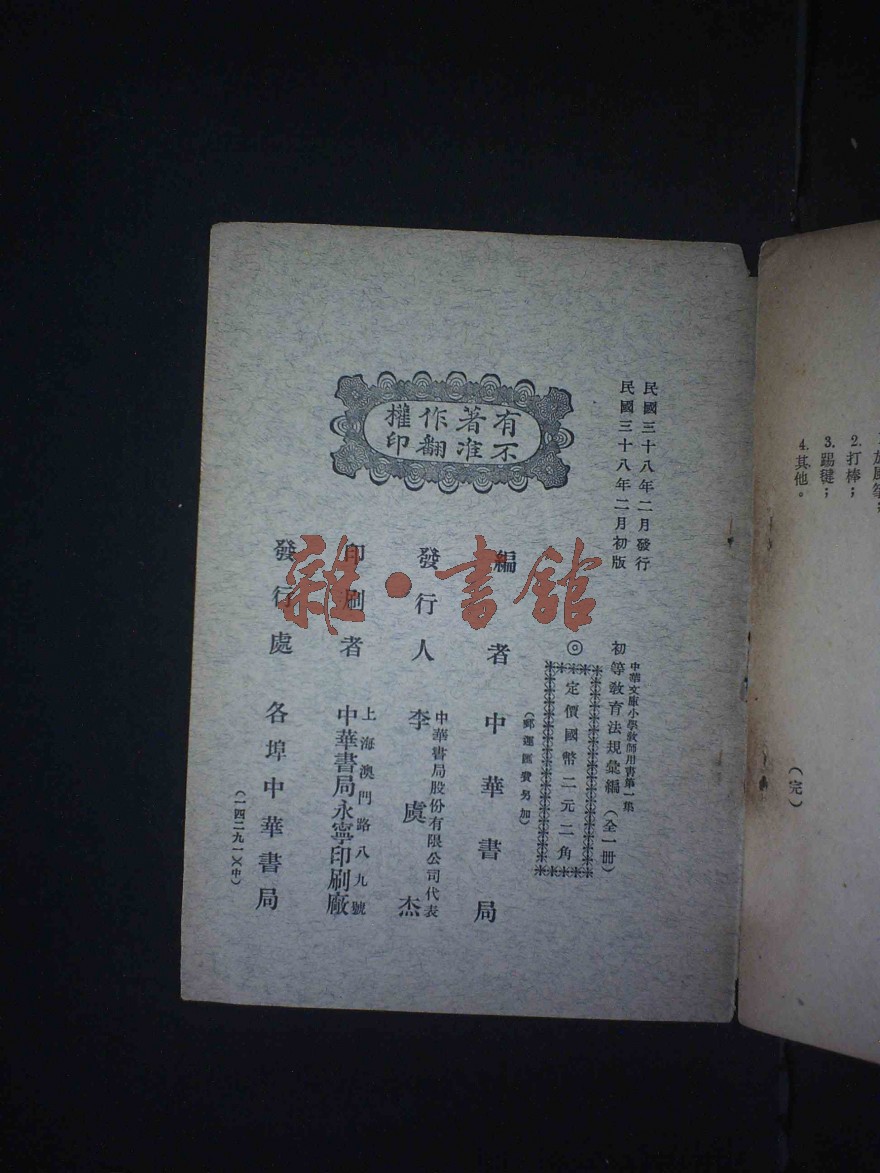 民國三十八年二月發行
民國三十八年二月初版
有著作權
不准翻印
中華文庫小學教師用書第一集
初等教育法規彙編（全一冊）
◎定價國幣二元二角
（郵運匯費另加）
編者中華書局
發行人
中華書局股份有限公司代表
李虞杰
印刷者
上海澳門路八九號
中華書局永寧印刷廠
發行處各埠中華書局
（一四二九一）（中）
雜·書館
2.打棒；
3.踢毽；
4.其他。
（完）